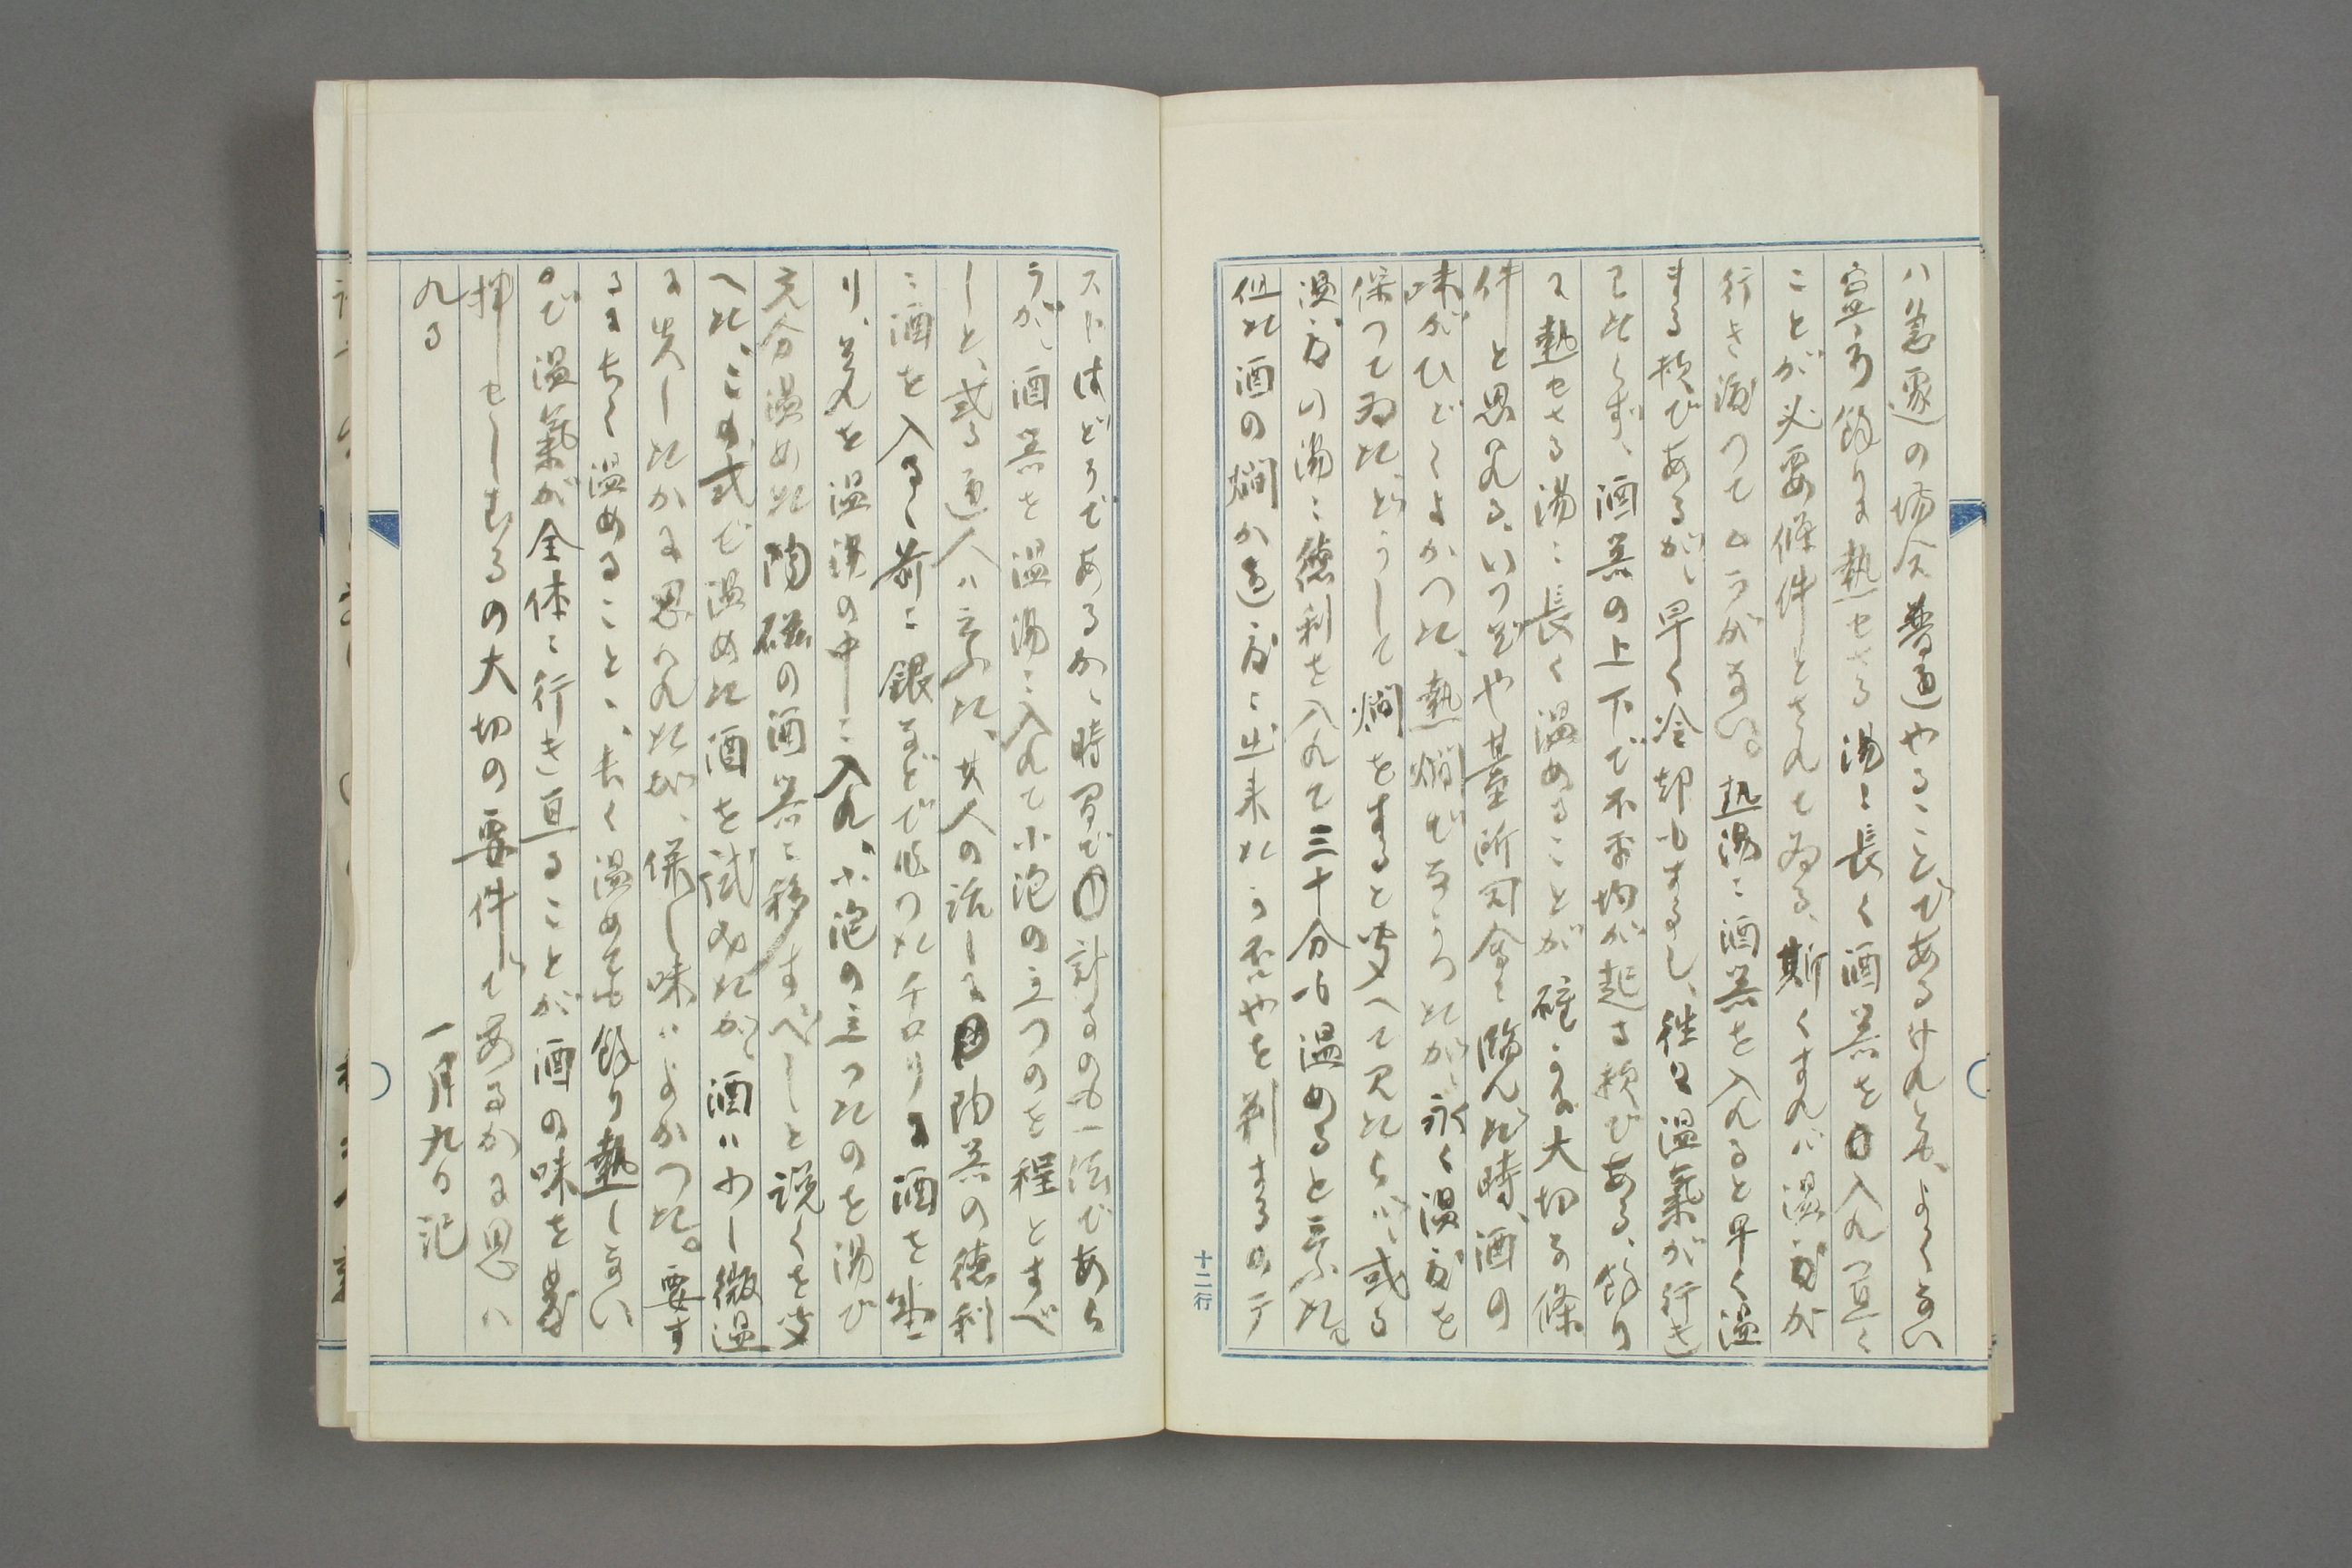 ハ急遽の場合普通やることであるけれども、よくない
寧ろ餘りに熱せざる湯に長く酒器を入れつ置く
ことが必要條件とされてゐる、斯くすれバ温度が
行き渡つてムラがない。熱湯に酒器を入れると早く温
まる様であるが、早く冷却もするし、往々温氣が行き
わたらず、酒器の上下で不平均が起る様である、餘り
に熱せざる湯に長く温めることが確かに大切な條
件と思はれる、いつぞや某臺所司會に臨んだ時、酒の
味がひどくよかつた、熱燗でなかつたが、永く温度を
保つてゐた、どうして燗をすると聞へて見たらバ、或る
温度の湯に徳利を入れて三十分も温めると云ふた、
但た酒の燗が適度に出来たか否やを判するのテ
ストはどうであるか、時間で計るのも一法であら
うが、酒器を温湯に入れて小泡の立つのを程とすべ
しと、或る通人ハ云ふた、其人の話しに陶器の徳利
に酒を入るゝ前に銀などで作つたチロリに酒を
り、之れを温湯の中に入れ、小泡の立つたのを湯で
充分温めた陶磁の酒器に移すべしと説くを聞
へた、この式で温めた酒を試みたが、酒ハ少し微温
に失したかに思ハれたが、併し味ハよかつた。要す
るに長く温めること、長く温めても餘り熱しない
ので温氣が全体に行き亘ることが酒の味を
揮せしむるの大切の要件であるかに思ハ
れる
一月九日記
十二行